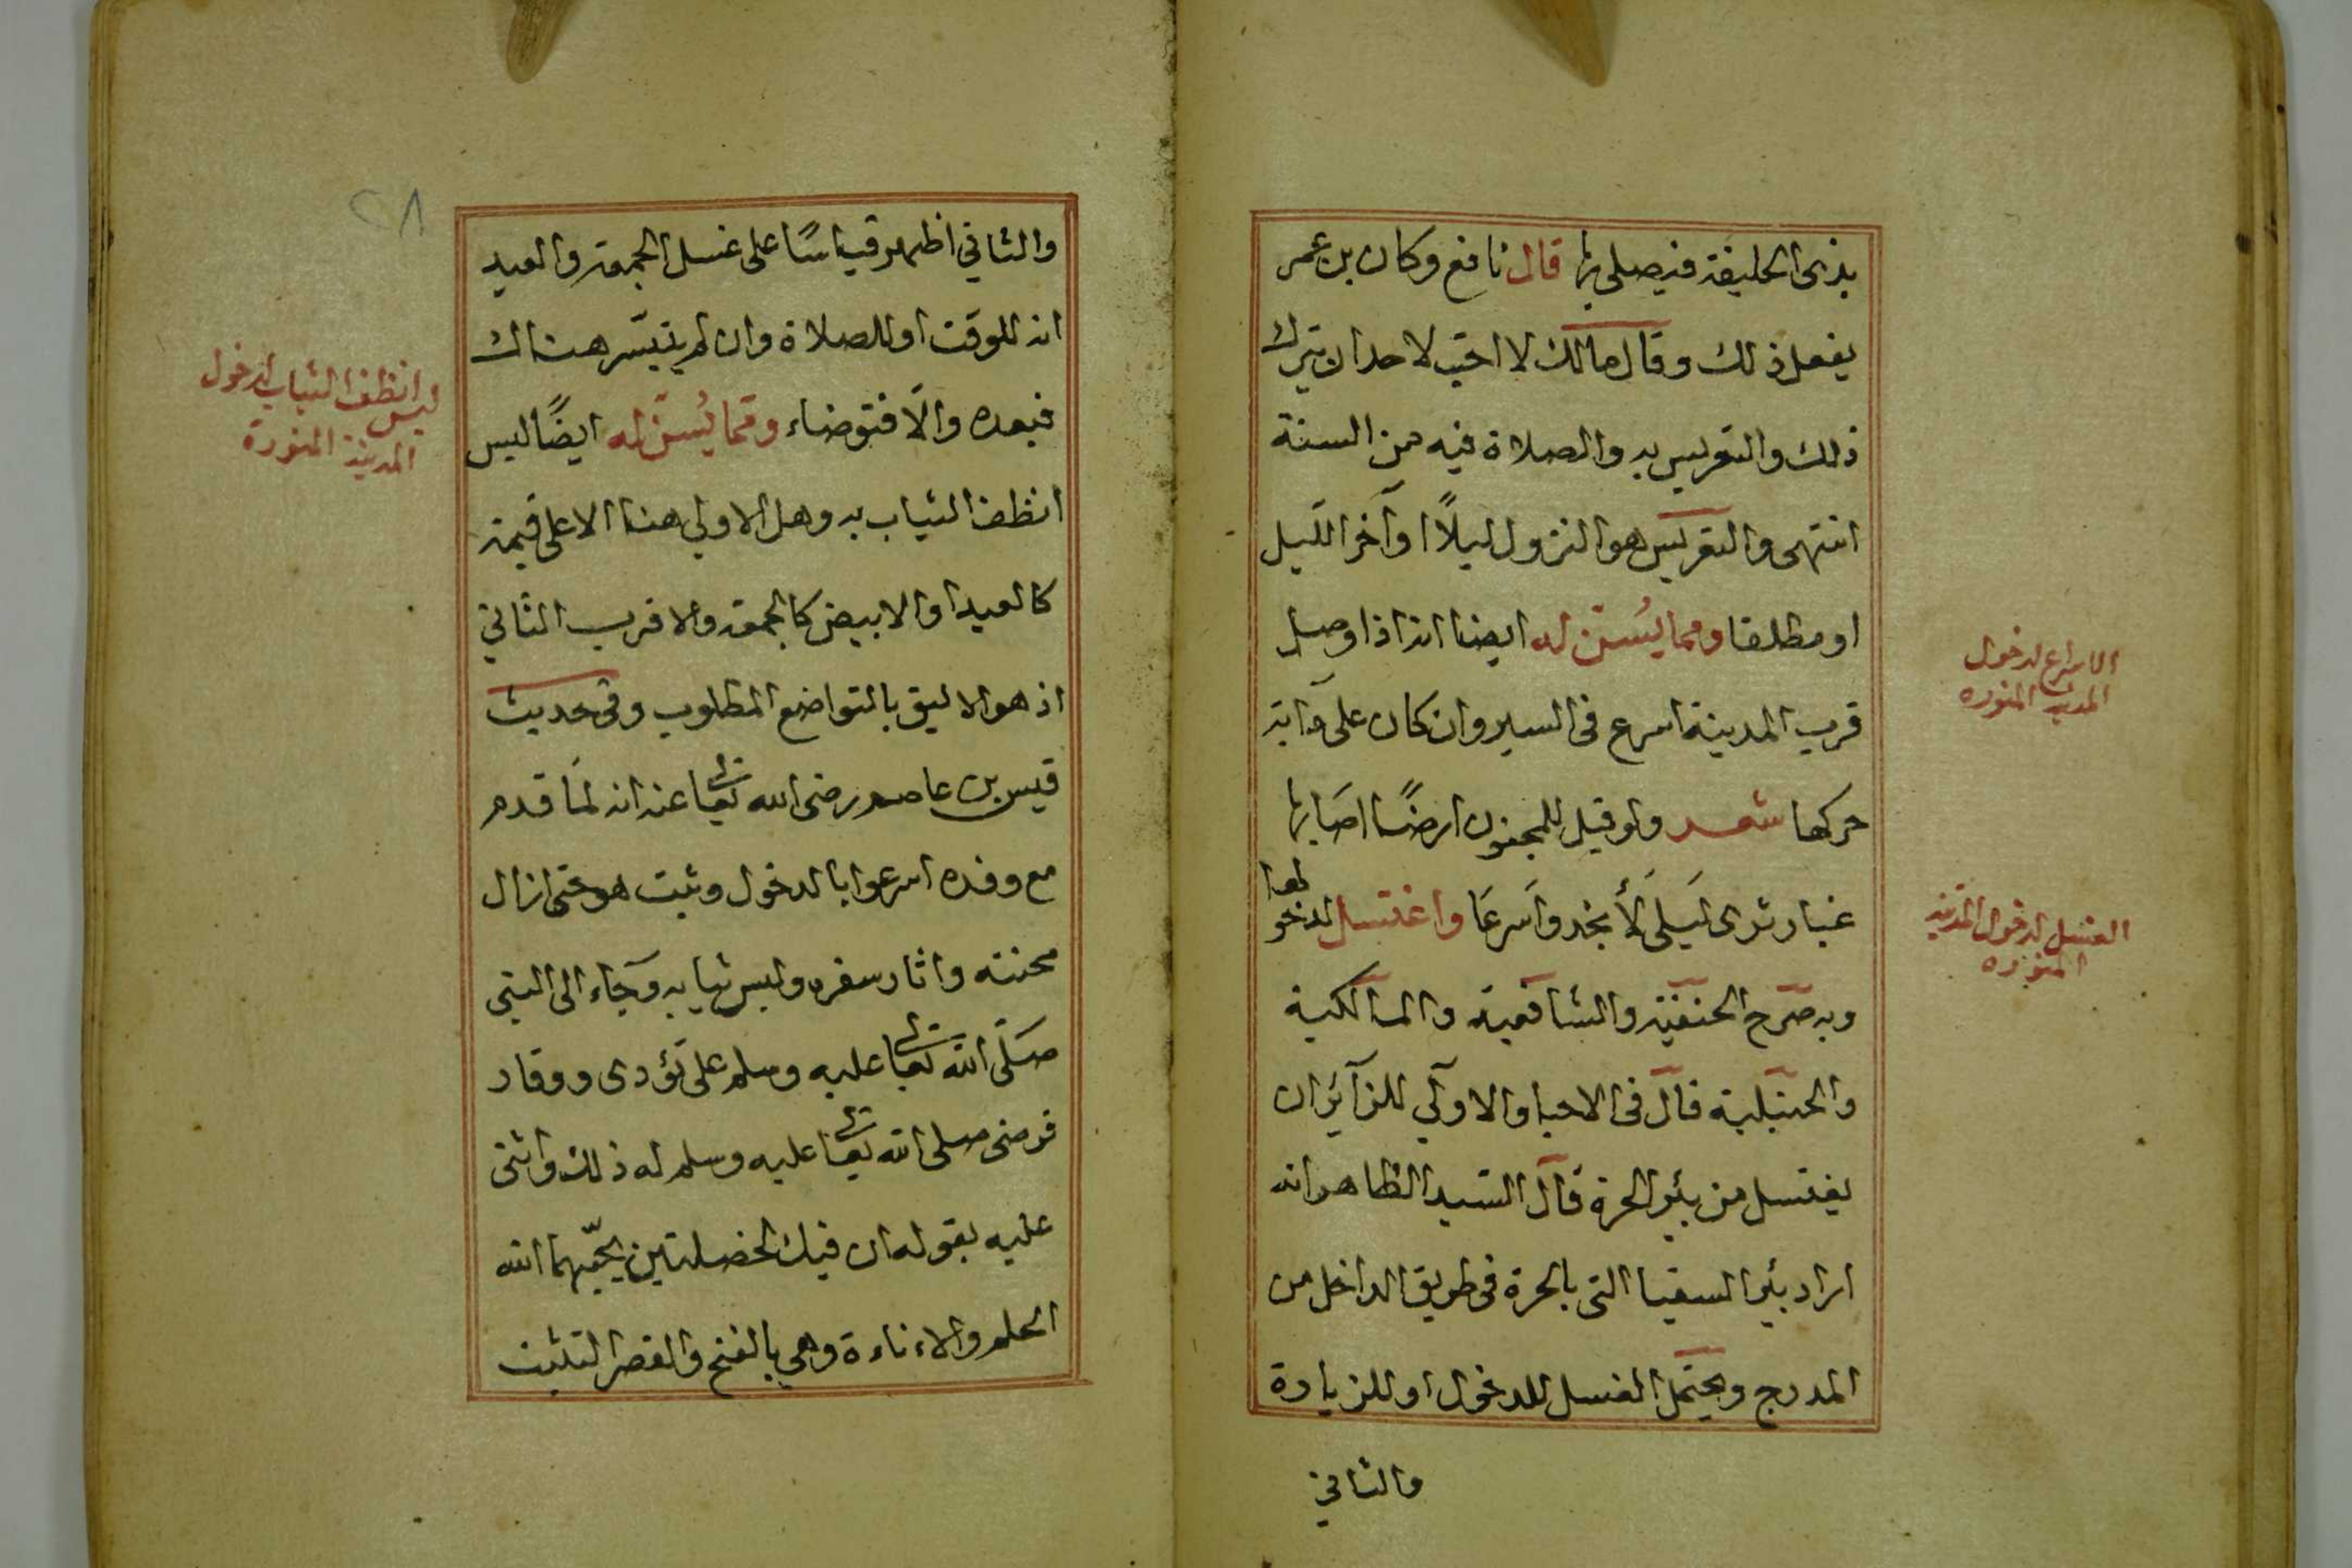 بذى الحليفة فيصلى بها قال نافع وكان بن عمر
يفعل ذلك وقال مالك لا احبّ لاحد ان يترك
ذلك والتعريس به والصلاة فيه من السنة
انتهى والتعريس هو النزول ليلاً او آخر الليل
او مطلقا ومما يُسنّ له ايضا انه اذا وصل
قرب المدينة اسرع فى السير وان كان على دابة
حركها شعر ولو قيل للمجنون ارضًا اصابها
غبار ثرى لَيلَى لأَ نجد وأَسرعَا واغتسل لدخولها
وبه صرّح الحنفية والشافعية والمالكية
والحنبلية قال فى الاحيا والاولى للزائر ان
يغتسل من بئر الحرة قال السيد الظاهر انه
اراد بئر السقيا التى بالحرة فى طريق الداخل من
المدرج ويحتمل الغسل للدخول او للزيارة
والثاني
الاسراع لدخول
المدينة المنوره
الغسل لدخول المدينة
المنوره
٢٨
والثاني اظهر قياسًا على غسل الجمعة والعيد
انه للوقت او للصلاة وان لم يتيسّر هناك
فبعده والّا فتوضاء ومّما يُسنّ له ايضًا لبس
انظف الثياب به وهل الاولى هنا الاعلى قيمة
كالعيد او الابيض كالجمعة والاقرب الثاني
اذ هو الاليق بالتواضع المطلوب وفى حديث
قيس بن عاصم رضى الله تعالى عنه انه لمَا قدم
مع وفده اسرعوا بالدخول وثبت هو حتى ازال
محنته واثار سفره ولبس ثيابه وجاء الى النبى
صلّى الله تعالى عليه وسلم على تؤدى ووقار
فرضى صلى الله تعالى عليه وسلم له ذلك واثنى
عليه بقوله ان فيك لخصلتين يحبّهما الله
الحلم والاءناءة وهي بالفتح والقصر التثبت
لبس انظف الثياب لدخول
المدينة المنورة